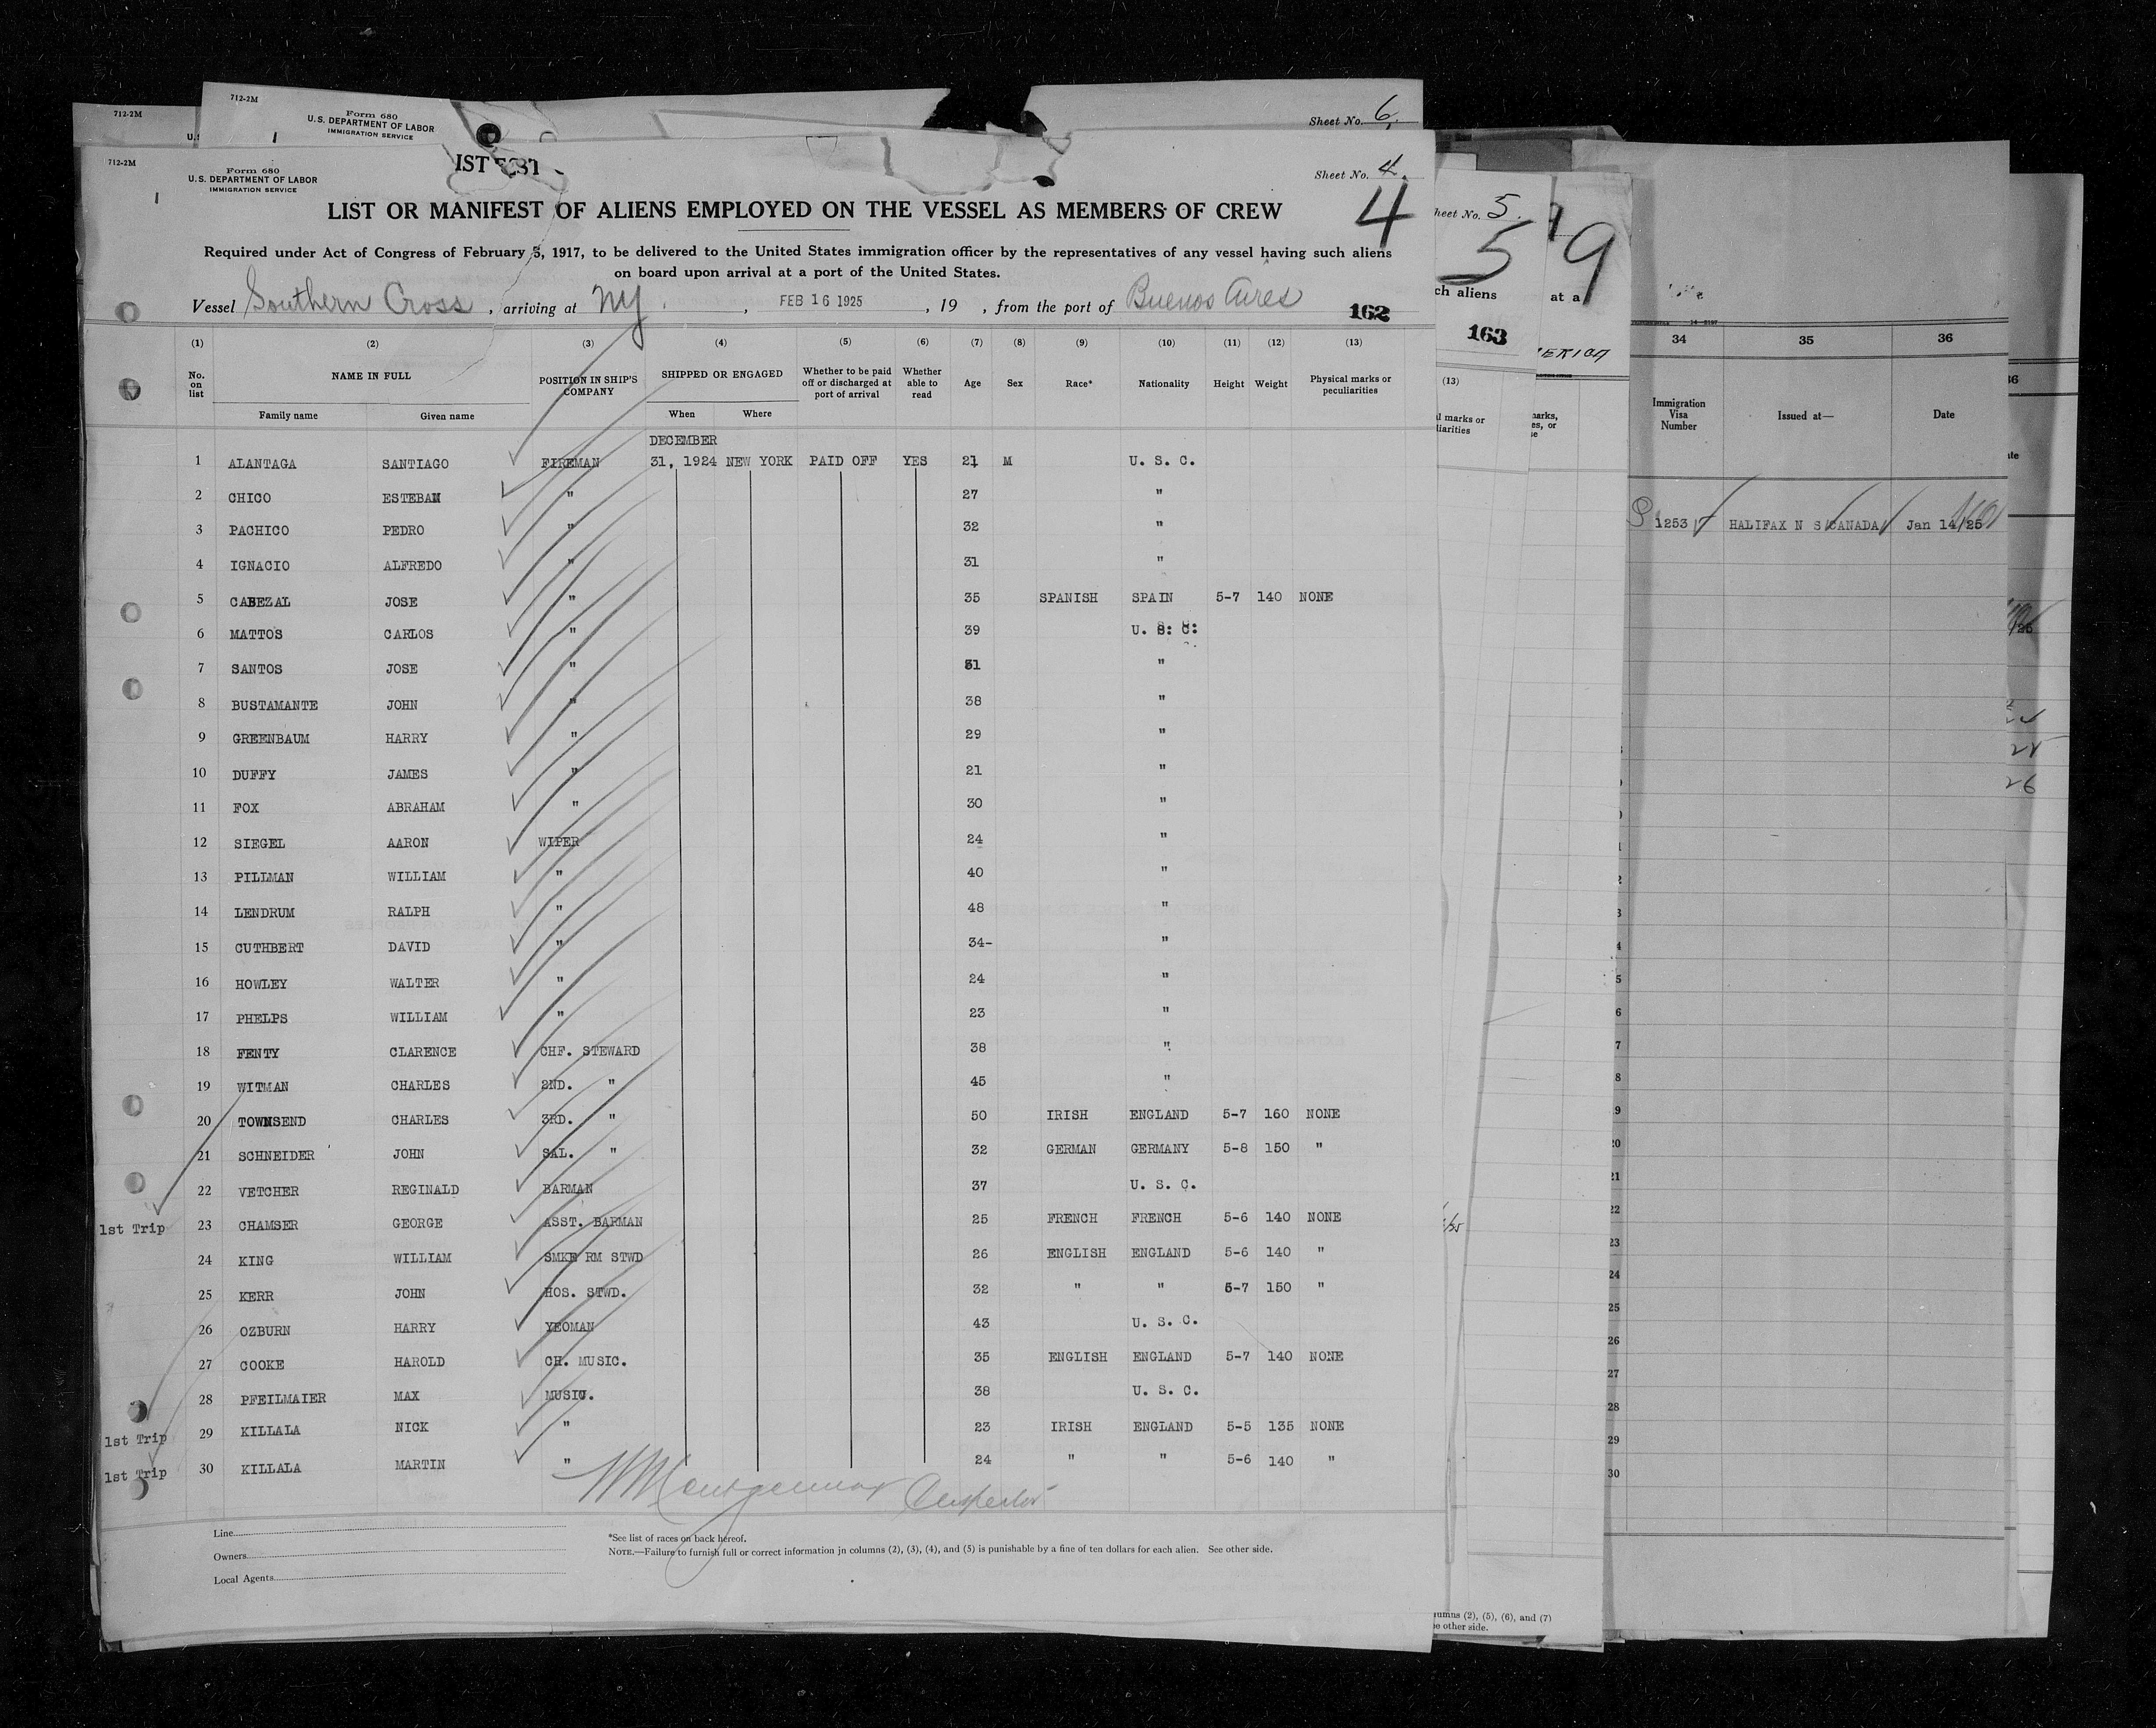 712-2M
712-2M
Form 680
U.S. DEPARTMENT OF LABOR
IMMIGRATION SERVICE
Sheet No. 6.
712-2M
Form 680
U.S. DEPARTMENT OF LABOR
IMMIGRATION SERVICE
Sheet No. 4.
4
LIST OR MANIFEST OF ALIENS EMPLOYED ON THE VESSEL AS MEMBERS OF CREW
Required under Act of Congress of February 5, 1917, to be delivered to the United States immigration officer by the representatives of any vessel having such aliens
on board upon arrival at a port of the United States.
Vessel Southern Cross, arriving at NY., FEB 16 1925, 19 , from the port of Buenos Aires
162
(1) (2) (3) (4) (5) (6) (7) (8) (9) (10) (11) (12) (13)
No. on list NAME IN FULL POSITION IN SHIP'S COMPANY SHIPPED OR ENGAGED Whether to be paid off or discharged at port of arrival Whether able to read Age Sex Race* Nationality Height Weight Physical marks or peculiarities
Family name Given name When Where
DECEMBER
1 ALANTAGA SANTIAGO FIREMAN 31, 1924 NEW YORK PAID OFF YES 21 M U. S. C.
2 CHICO ESTEBAN " 27 "
3 PACHICO PEDRO " 32 "
4 IGNACIO ALFREDO " 31 "
5 CABEZAL JOSE " 35 SPANISH SPAIN 5-7 140 NONE
6 MATTOS CARLOS " 39 U. S. C.
7 SANTOS JOSE " 31 "
8 BUSTAMANTE JOHN " 38 "
9 GREENBAUM HARRY " 29 "
10 DUFFY JAMES " 21 "
11 FOX ABRAHAM " 30 "
12 SIEGEL AARON WIPER 24 "
13 PILLMAN WILLIAM " 40 "
14 LENDRUM RALPH " 48 "
15 CUTHBERT DAVID " 34- "
16 HOWLEY WALTER " 24 "
17 PHELPS WILLIAM " 23 "
18 FENTY CLARENCE CHF. STEWARD 38 "
19 WITMAN CHARLES 2ND. " 45 "
20 TOWNSEND CHARLES 3RD. " 50 IRISH ENGLAND 5-7 160 NONE
21 SCHNEIDER JOHN SAL. " 32 GERMAN GERMANY 5-8 150 "
22 VETCHER REGINALD BARMAN 37 U. S. C.
1st Trip 23 CHAMSER GEORGE ASST. BARMAN 25 FRENCH FRENCH 5-6 140 NONE
24 KING WILLIAM SMKE RM STWD 26 ENGLISH ENGLAND 5-6 140 "
25 KERR JOHN HOS. STWD. 32 " " 5-7 150 "
26 OZBURN HARRY YEOMAN 43 U. S. C.
27 COOKE HAROLD CH. MUSIC. 35 ENGLISH ENGLAND 5-7 140 NONE
28 PFEILMAIER MAX MUSIC. 38 U. S. C.
1st Trip 29 KILLALA NICK " 23 IRISH ENGLAND 5-5 135 NONE
1st Trip 30 KILLALA MARTIN " 24 " " 5-6 140 "
Montgomery Inspector
Line
Owners
Local Agents
*See list of races on back hereof.
NOTE.—Failure to furnish full or correct information in columns (2), (3), (4), and (5) is punishable by a fine of ten dollars for each alien. See other side.
heet No. 5.
5
ch aliens
163
(13)
l marks or
liarities
9
at a
ERICA
arks,
es, or
se
umns (2), (5), (6), and (7)
ee other side.
34 35 36
Immigration Visa Number Issued at— Date
1253 HALIFAX N S CANADA Jan 14/25
19
20
21
22
23
24
25
26
27
28
29
30
36
25
26